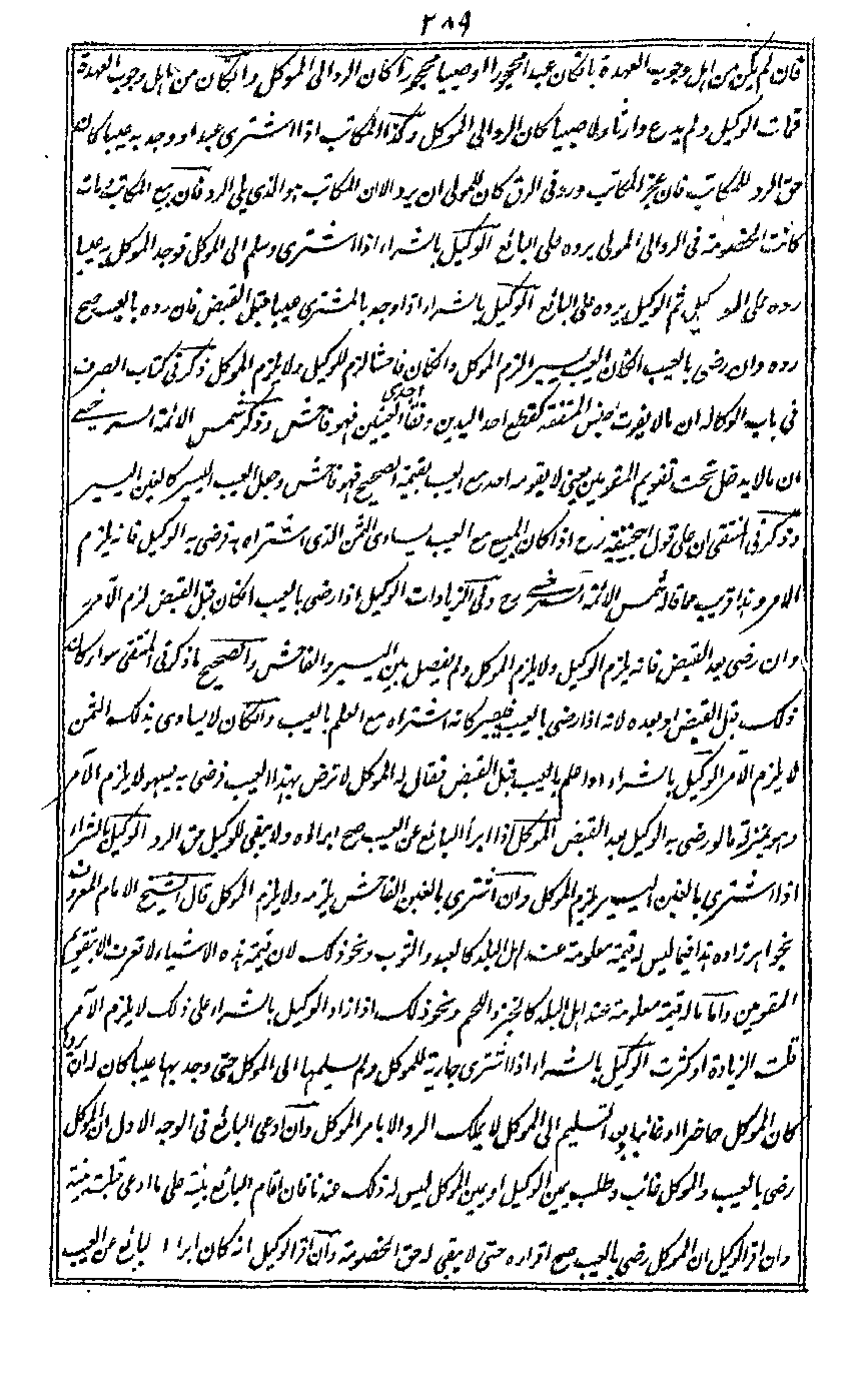 ٢٨٩
فان لم يكن من اهل وجوب العهدة بان كان عبدا محجورا او صبيا محجورا كان الرد الى الموكل وان كان من اهل وجوب العهدة
فمات الوكيل ولم يدع وارثا ولا وصيا كان الرد الى الموكل وكذا المكاتب اذا اشترى عبدا ووجد به عيبا كان له
حق الرد للمكاتب فان عجز المكاتب ورد في الرق كان للمولى ان يرد الا ان المكاتب هو الذي يلي الرد فان بيع المكاتب او مات
كانت الخصومة في الرد الى المولى يرده على البائع الوكيل بالشراء اذا اشترى وسلم الى الموكل فوجد الموكل به عيبا
رده على الوكيل ثم الوكيل يرده على البائع الوكيل بالشراء اذا وجد بالمشترى عيبا قبل القبض فان رده بالعيب صح
رده وان رضى بالعيب ان كان العيب يسيرا لزم الموكل وان كان فاحشا لزم الوكيل ولا يلزم الموكل ذكر في كتاب الصرف
في باب الوكالة ان ما لا يفوت جنس المنفعة كقطع احد اليدين وفقأ احدى العينين فهو فاحش وذكر شمس الائمة السرخسي
ان ما لا يدخل تحت تقويم المقومين يعني لا يقومه احد مع العيب بقيمة الصحيح فهو فاحش وجعل العيب اليسير كالغبن اليسير
وذكر في المنتقى ان على قول ابي حنيفة رح اذا كان المبيع مع العيب يساوى الثمن الذي اشتراه به فرضى به الوكيل فانه يلزم
الامر وهذا قريب مما قاله شمس الائمة السرخسي رح وفي الزيادات الوكيل اذا رضى بالعيب ان كان قبل القبض لزم الآمر
وان رضى بعد القبض فانه يلزم الوكيل ولا يلزم الموكل ولم يفصل بين اليسير والفاحش والصحيح ما ذكر في المنتقى سواء كان
ذلك قبل القبض او بعده لانه اذا رضى بالعيب فيصير كانه اشتراه مع العلم بالعيب وان كان لا يساوى بذلك الثمن
لا يلزم الآمر الوكيل بالشراء اذا علم بالعيب قبل القبض فقال له الموكل لا ترض بهذا العيب فرضى به فهو لا يلزم الآمر
وهو بمنزلة ما لو رضى به الوكيل بعد القبض الموكل اذا ابرأ البائع عن العيب صح ابراؤه ولا يبقى للوكيل حق الرد الوكيل بالشراء
اذا اشترى بالغبن اليسير يلزم الموكل وان اشترى بالغبن الفاحش يلزمه ولا يلزم الموكل قال الشيخ الامام المعروف
بخواهرزاده هذا فيما ليس له قيمة معلومة عند اهل البلد كالعبد والثوب ونحو ذلك لان قيمة هذه الاشياء لا تعرف الا بتقويم
المقومين واما ما له قيمة معلومة عند اهل البلد كالخبز واللحم ونحو ذلك اذا زاد الوكيل بالشراء على ذلك لا يلزم الآمر
قلت الزيادة او كثرت الوكيل بالشراء اذا اشترى جارية للموكل ولم يسلمها الى الموكل حتى وجد بها عيبا كان له ان يردها
كان الموكل حاضرا او غائبا وبعد التسليم الى الموكل لا يملك الرد الا بامر الموكل وان ادعى البائع في الوجه الاول ان الموكل
رضى بالعيب والموكل غائب وطلب يمين الوكيل او يمين الموكل ليس له ذلك عندنا فان اقام البائع بينة على ما ادعى قبلت بينته
وان اقر الوكيل ان الموكل رضى بالعيب صح اقراره حتى لا يبقى له حق الخصومة وان اقر الوكيل انه كان ابرأ البائع عن العيب